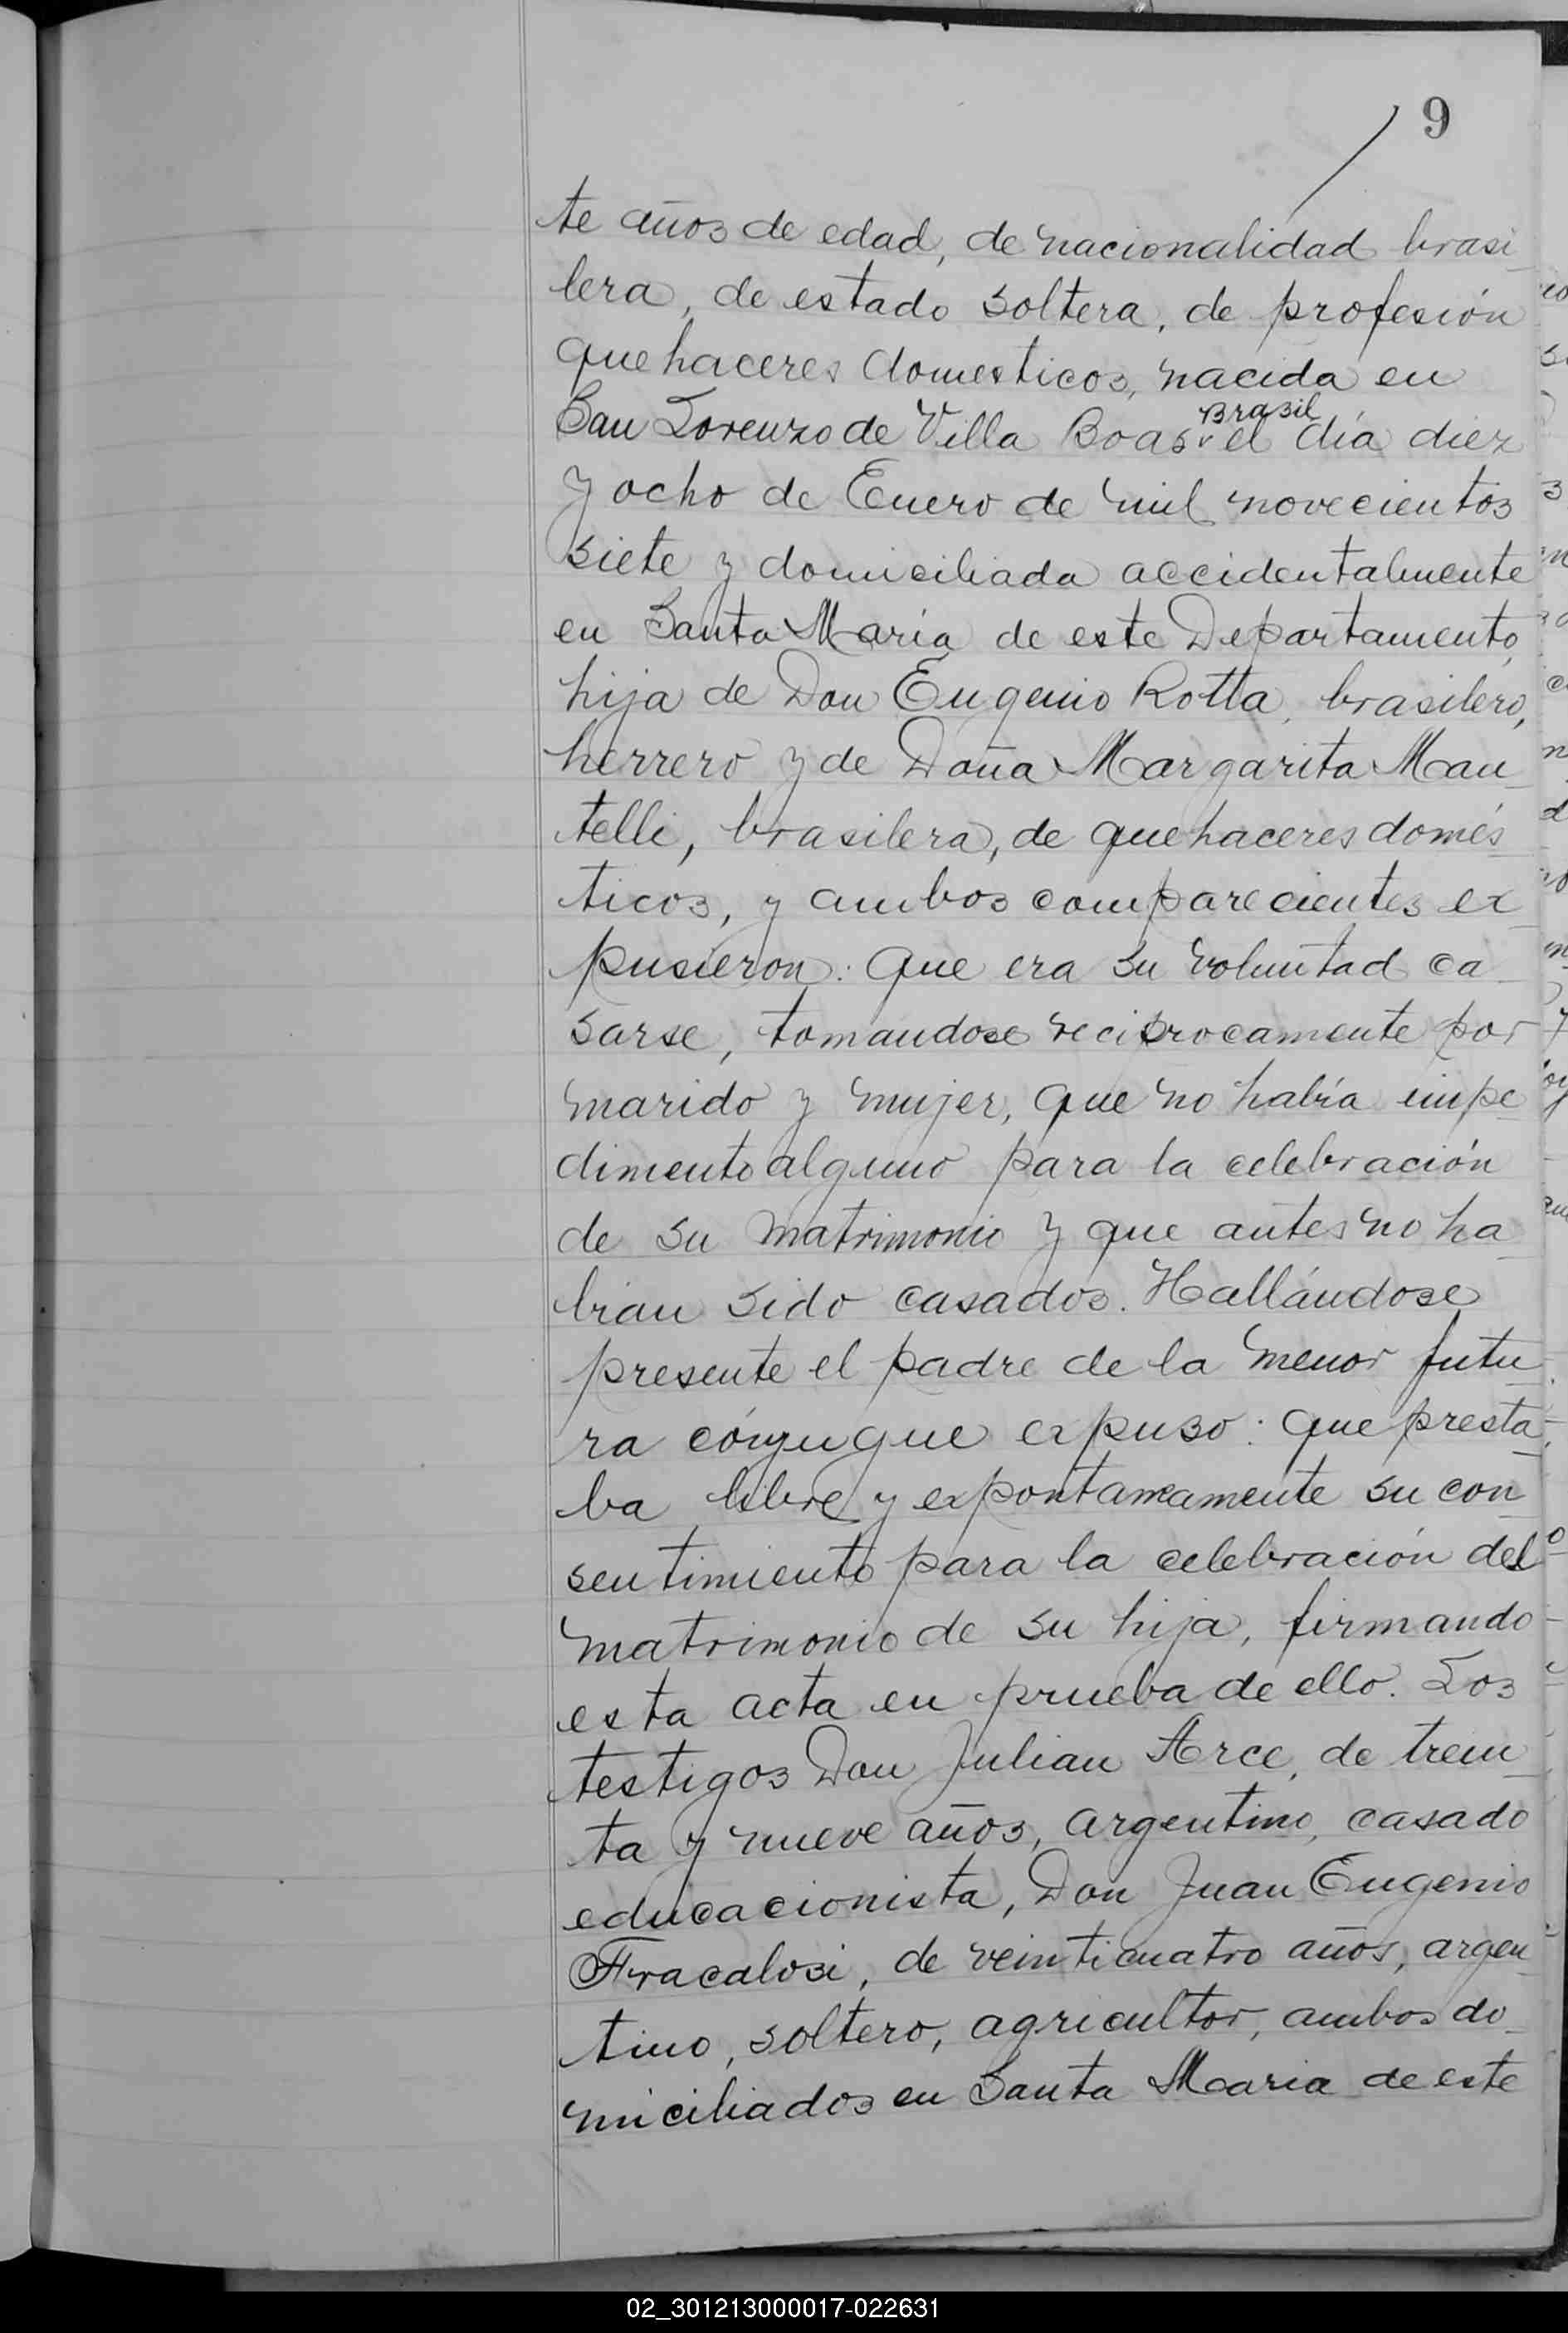 9
te años de edad, de nacionalidad brasi
lera, de estado soltera, de profesión
quehaceres domesticos, nacida en
Brasil
San Lorenzo de Villa Boas el día diez
y ocho de Enero de mil novecientos
siete y domiciliada accidentalmente
en Santa María de este Departamento,
hija de Don Eugenio Rotta, brasilero,
herrero y de Doña Margarita Man
telli, brasilera, de quehaceres domés
ticos, y ambos comparecientes ex
pusieron: Que era su voluntad ca
sarse, tomandose reciprocamente por
marido y mujer, que no había impe
dimento alguno para la celebración
de su matrimonio y que antes no ha
bian sido casados. Hallándose
presente el padre de la menor futu
ra cónyugue expuso: que presta
ba libre y expontaneamente su con
sentimiento para la celebración del
matrimonio de su hija, firmando
esta acta en prueba de ello. Los
testigos Don Julian Arce, de trein
ta y nueve años, argentino, casado
educacionista, Don Juan Eugenio
Fracalosi, de veinticuatro años, argen
tino, soltero, agricultor, ambos do
miciliados en Santa Maria de este
02_301213000017-022631